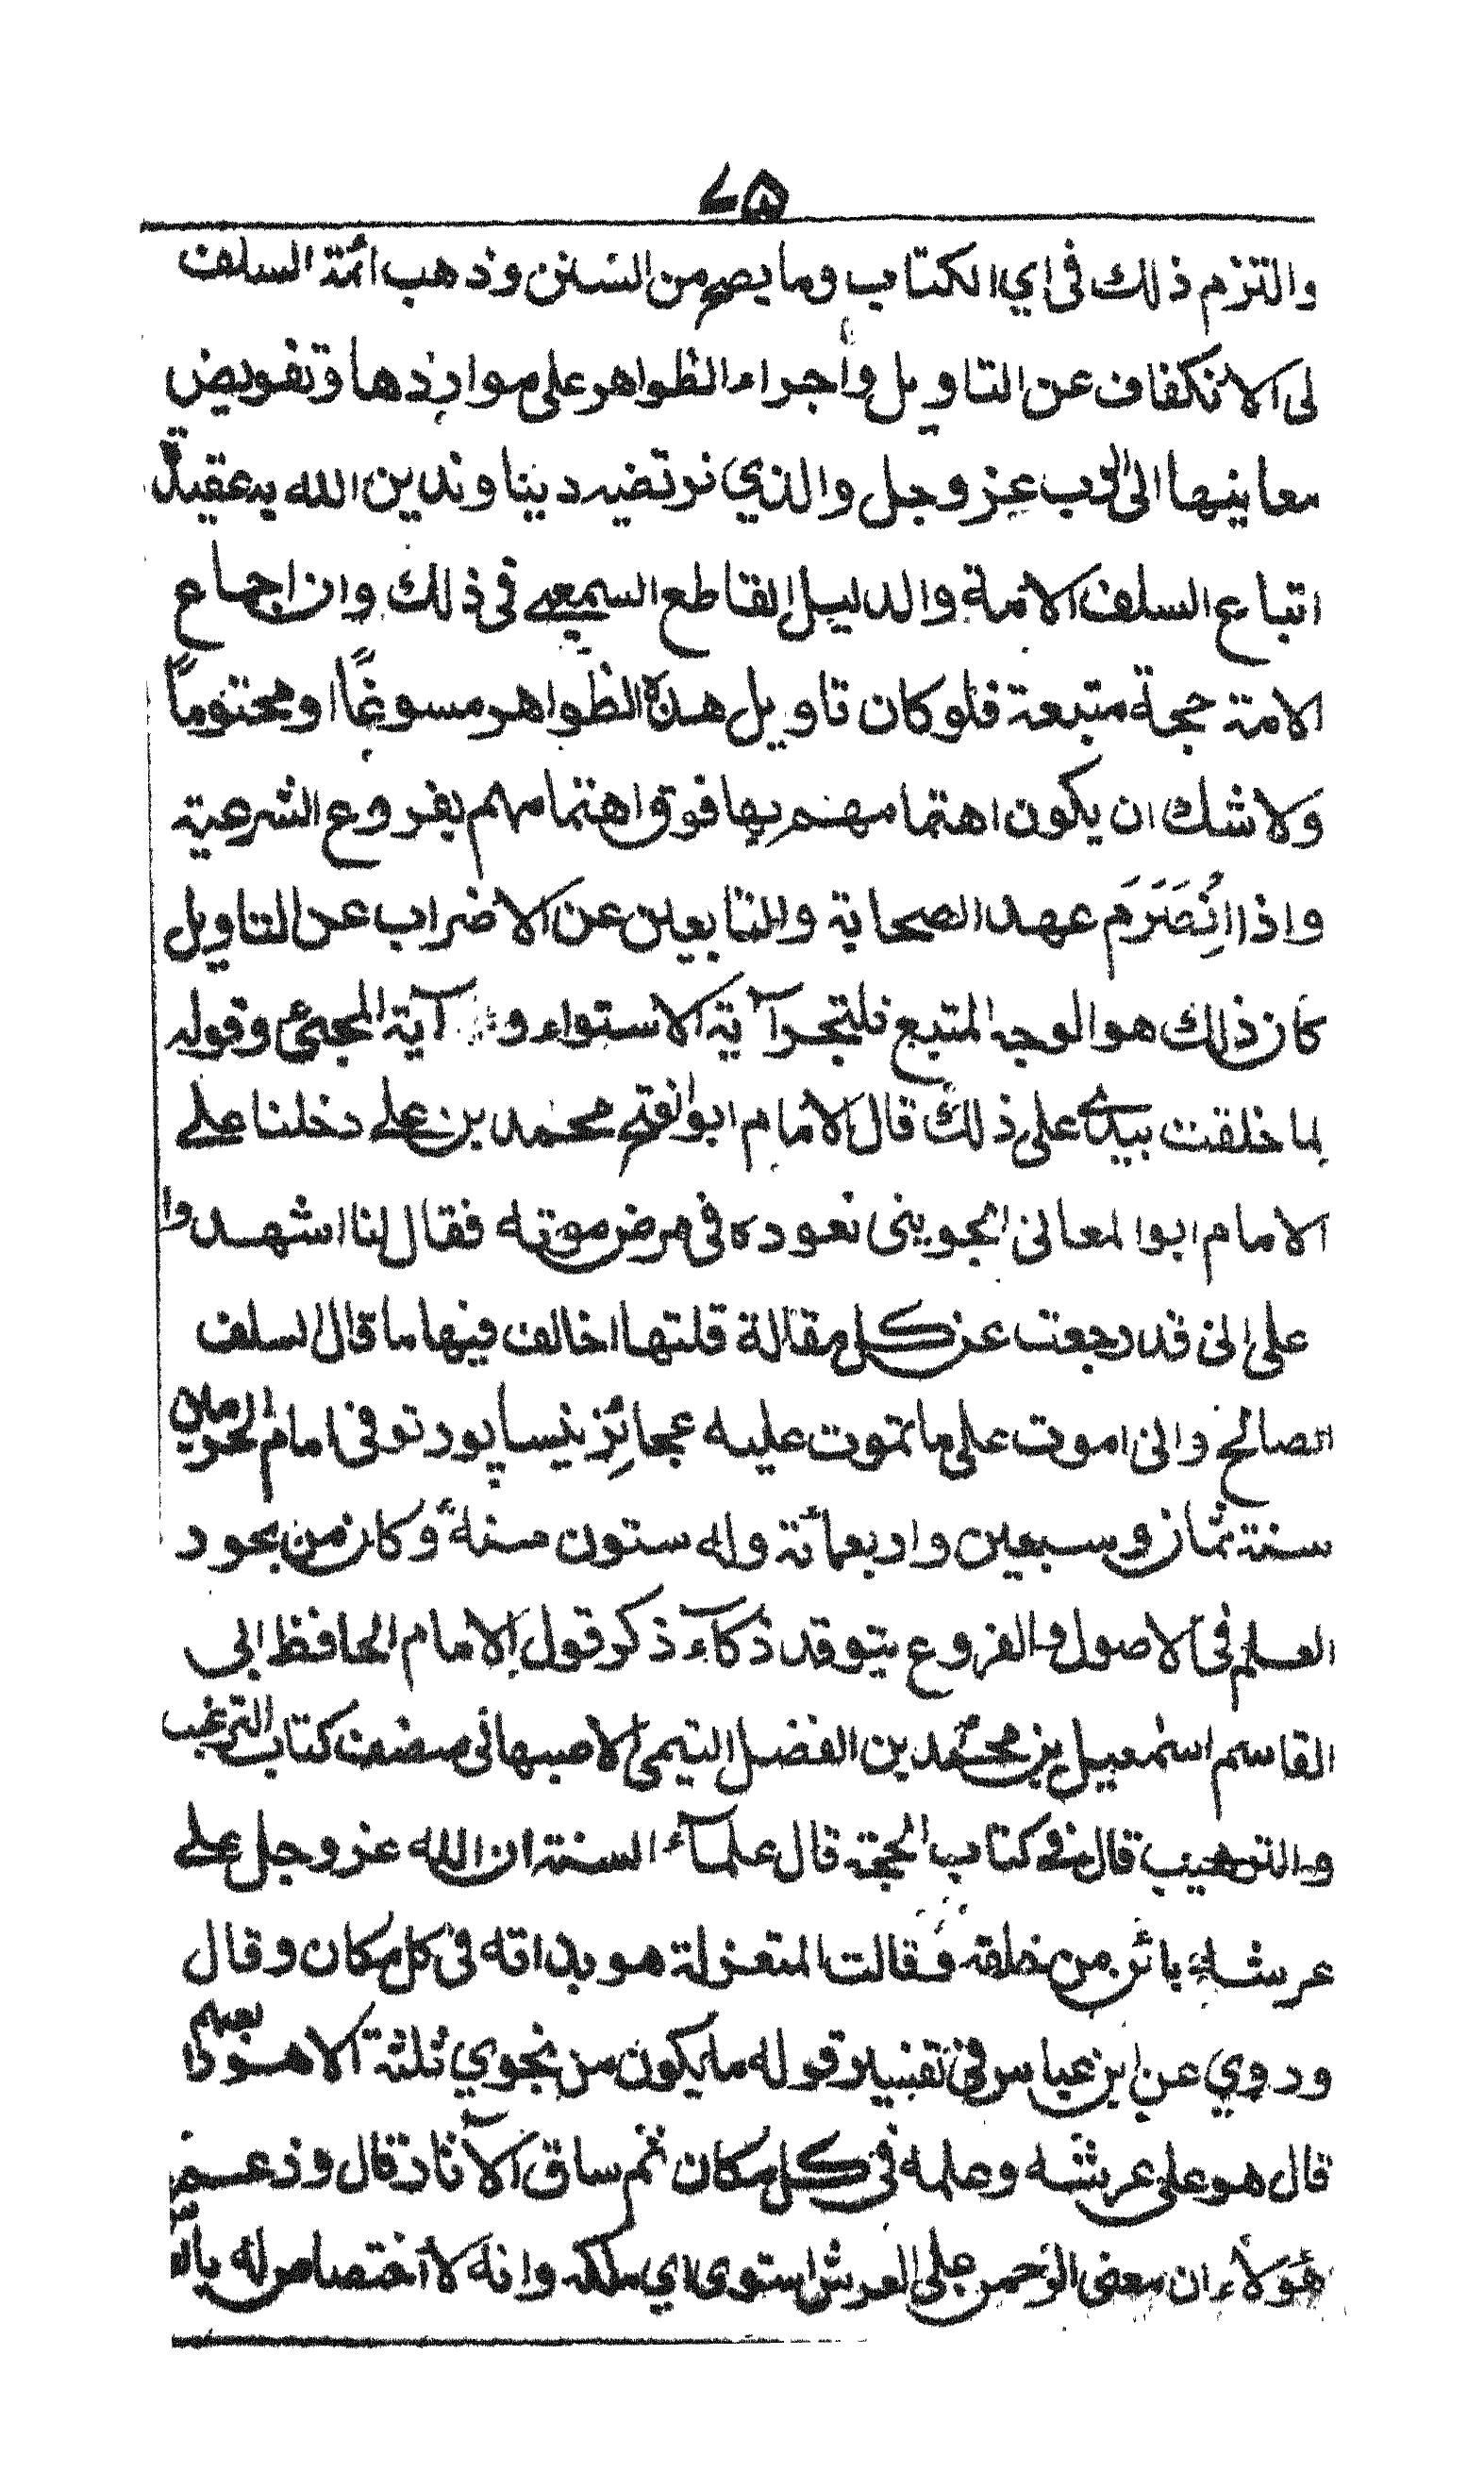 ٧٥
والتزم ذلك في اي الكتاب وما يصح من السنن وذهب ائمة السلف
لى الانكفاف عن التاويل واجراء الظواهر على مواردها وتفويض
معانيها الى الرب عز وجل والذي نرتضيه دينا وندين الله به عقيدة
اتباع السلف الامة والدليل القاطع السمعي في ذلك وان اجماع
الامة حجة متبعة فلو كان تاويل هذه الظواهر مسوغًا او محتومًا
ولا شك ان يكون اهتمامهم بها فوق اهتمامهم بفروع الشرعية
واذا انِصَرَمَ عهد الصحابة والتابعين عن الاضراب عن التاويل
كان ذلك هو الوجه المتبع فلتجر آية الاستواء و آية المجئ وقوله
لما خلقت بيدي على ذلك قال الامام ابو الفتح محمد بن علي دخلنا على
الامام ابو المعالى الجوينى نعوده في مرض موته فقال لنا اشهدوا
على انى قد رجعت عن كل مقالة قلتها اخالف فيها ما قال السلف
الصالح وانى اموت على ما تموت عليه عجائز نيسابور توفى امام الحرمين
سنة ثمان وسبعين واربعمائة وله ستون سنة وكان من بحور
العلم في الاصول والفروع يتوقد ذكآء ذكر قول الامام الحافظ ابى
القاسم اسمعيل بن محمد بن الفضل التيمى الاصبهانى مصنف كتاب الترغيب
والترهيب قال في كتاب الحجة قال علمآء السنة ان الله عز وجل على
عرشه بائن من خلقه وقالت المتعزلة هو بذاته في كل مكان وقال
وروي عن ابن عباس في تفسير قوله ما يكون من نجوي ثلثة الا هو رابعهم
قال هو على عرشه وعلمه في كل مكان ثم ساق الآثار قال وزعم
هَؤلاء ان معنى الرحمن على العرش استوى اي ملكه وانه لا اختصاص له بالـ